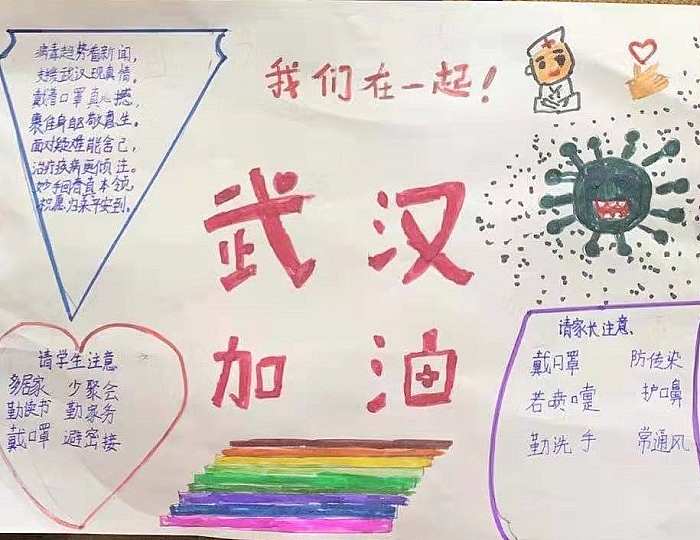 病毒趋势看新闻,
支援武汉现真情,
戴着口罩真心憾,
裹住身 敬意生。
面对疑难能舍己,
治疗疾病更倾注。
妙手回春真本领,
祝愿归来平安到。
我们在一起!
武汉
加油
请学生注意
多居家 少聚会
勤读书 勤家务
戴口罩 避密接
请家长注意、
戴口罩 防传染
若喷嚏 护口鼻
勤洗手 常通风